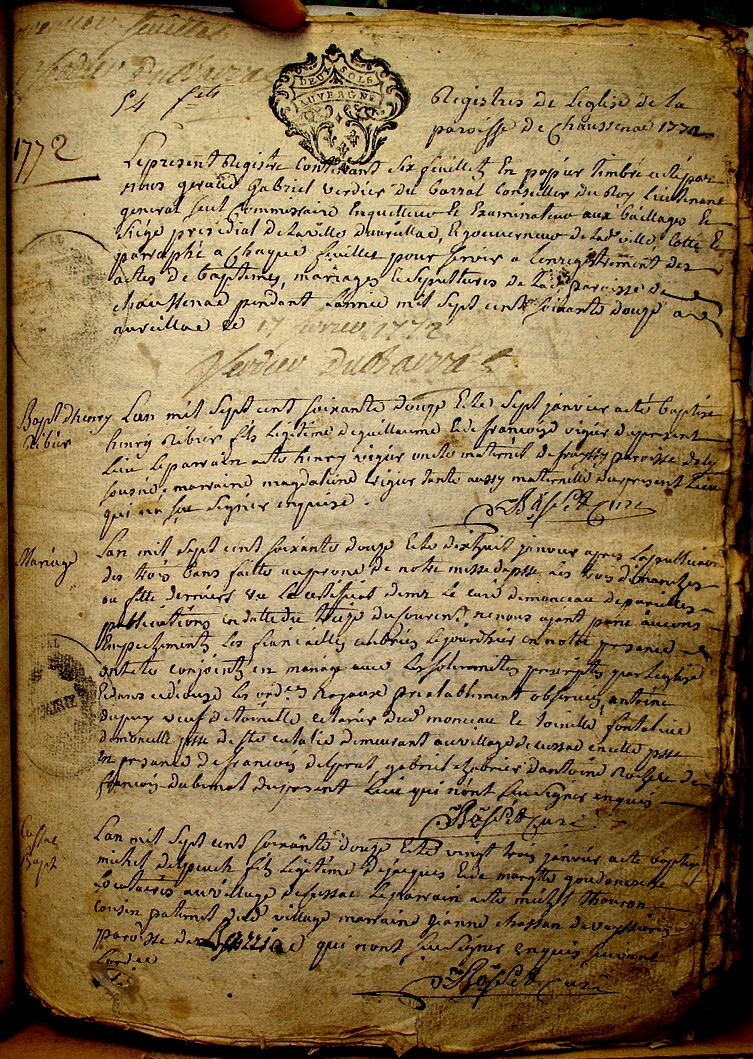 premier feuillet
Verdier Dubarra
54 fts
DEUX SOLS
AUVERGNE
Registres de Leglise de La
paroisse de Chaussenac 1772
1772
Lepresent Registre Contenant Six feuillets En papier timbré a eté par
nous geraud Gabriel verdier du barrat Conseiller du Roy Lieutenant
general Seul Commissaire Enqueteur Et Examinateur aux bailliages Et
Siege presidial de La ville d'aurillac, Et gouverneur de Lade ville, Cotté Et
paraphé a Chaque feuillet pour Servir a Lenregistrement des
actes de baptemes, mariages et Sepultures de Lade paroisse de
chaussenac pendant Lannée mil Sept cent Soixante douze a
aurillac Le 17 fevrier 1772
Verdier Dubarrat
Bapt d'henry
Ribier
Lan mil Sept cent soixante douze Et Le Sept janvier a eté baptisé
henry Ribier fils Legitime de guillaume Et de françoise vigier du present
Lieu Le parrain a eté henry vigier oncle maternel de paroisse de
marraine magdelaine vigier tante aussy maternelle du present Lieu
qui n'a sçu Signer enquise.
Basset Curé
Mariage
Lan mil Sept cent soixante douze Et Le dixhuit janvier apres Les publications
des trois bans faitte au prone de notre messe de psse Les trois dimanches
ou fette derniers vu Le certificat de mr Le curé de monceau de pareilles
publications en datte du treize du Courent ne nous ayant parue aucuns
Empechements Les fiancailles celebrés Le jourd'hier en notre presence
ont eté conjoints en mariage avec Les solemnites prescriptes par L'eglise
Et dans ce diocese Les ordces Royaux prealablement observés, antoine
dupuy veuf de toinette de lad monceau Et toinette fontalive
psse de ste eulalie demeurant au village de cussac en cette psse
En presence de francois delprat gabriel Chabrier d'antoine de
francois dubernet du present Lieu qui n'ont sçu signer enquis
Basset curé
Cussac
Bapt
Lan mil Sept cent soixante douze Et Le vingt trois janvier a eté baptisé
michel delpeuch fils Legitime de jacques Et de margte
Locataires au village de cussac Le parrain a eté michel
cousin paternel dud village marraine jeanne chassan de
paroisse de qui n'ont sçu signer enquis suivant
Lordce
Basset curé